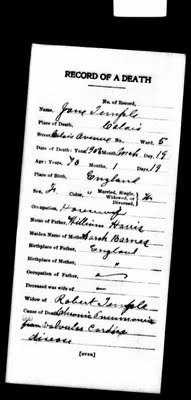 RECORD OF A DEATH
No. of Record,
Name, Jane Temple
Place of Death, Calais
Street, Calais Avenue No. Ward, 5
Date of Death: Year, 1903 Month, Day, 19
Age: Years, 70 Months, 1 Days, 19
Place of Birth, England
Sex, F. Color, or Married, Single, Widowed, or Divorced, W.
Occupation, Housewf
Name of Father, William Harris
Maiden Name of Mother, Sarah Barnes
Birthplace of Father, England
Birthplace of Mother, "
Occupation of Father,
Deceased was wife of —
Widow of Robert Temple
Cause of Death, Chronic Pneumonia
from Valvular Cardiac
disease
[OVER]